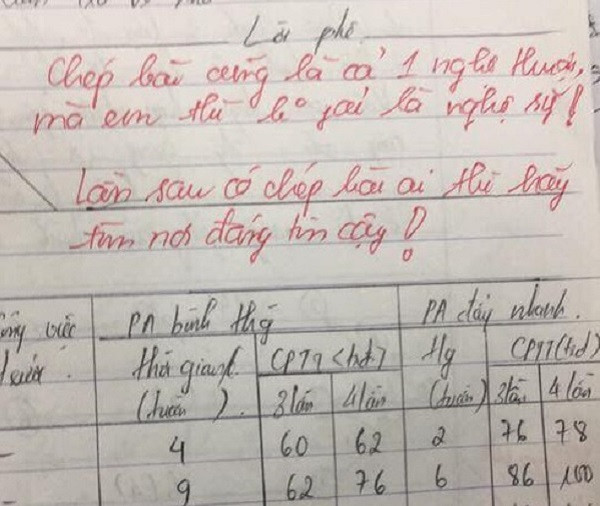 Lời phê
Chép bài cũng là cả 1 nghệ thuật,
mà em thì k° phải là nghệ sỹ!
Lần sau có chép bài ai thì hãy
tìm nơi đáng tin cậy!
PA bình thg PA đẩy nhanh.
việc thời gian CPTT (tr.đ) tg CPTT (tr.đ)
(tuần) 3 lần 4 lần (tuần) 3 lần 4 lần
4 60 62 2 76 78
9 62 76 6 86 100